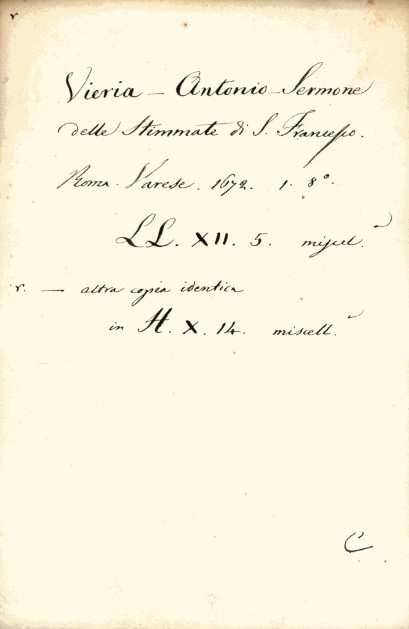 r
Vieria - Antonio - Sermone
delle Stimmate di S. Francesco.
Roma. Varese. 1672. 1. 8°.
LL. XII. 5. miscel.a
r. — altra copia identica
in H. X. 14. miscell.a
C